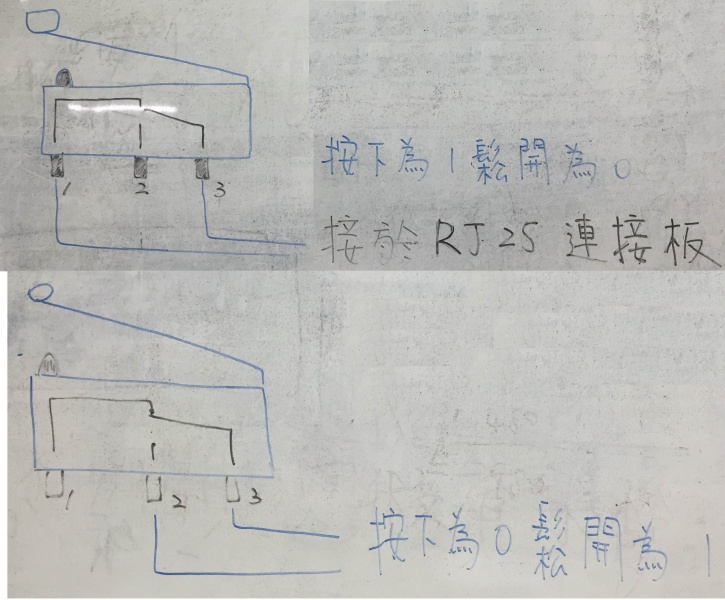 按下為1鬆開為0
1 2 3
接於RJ25連接板
1 2 3
按下為0鬆開為1